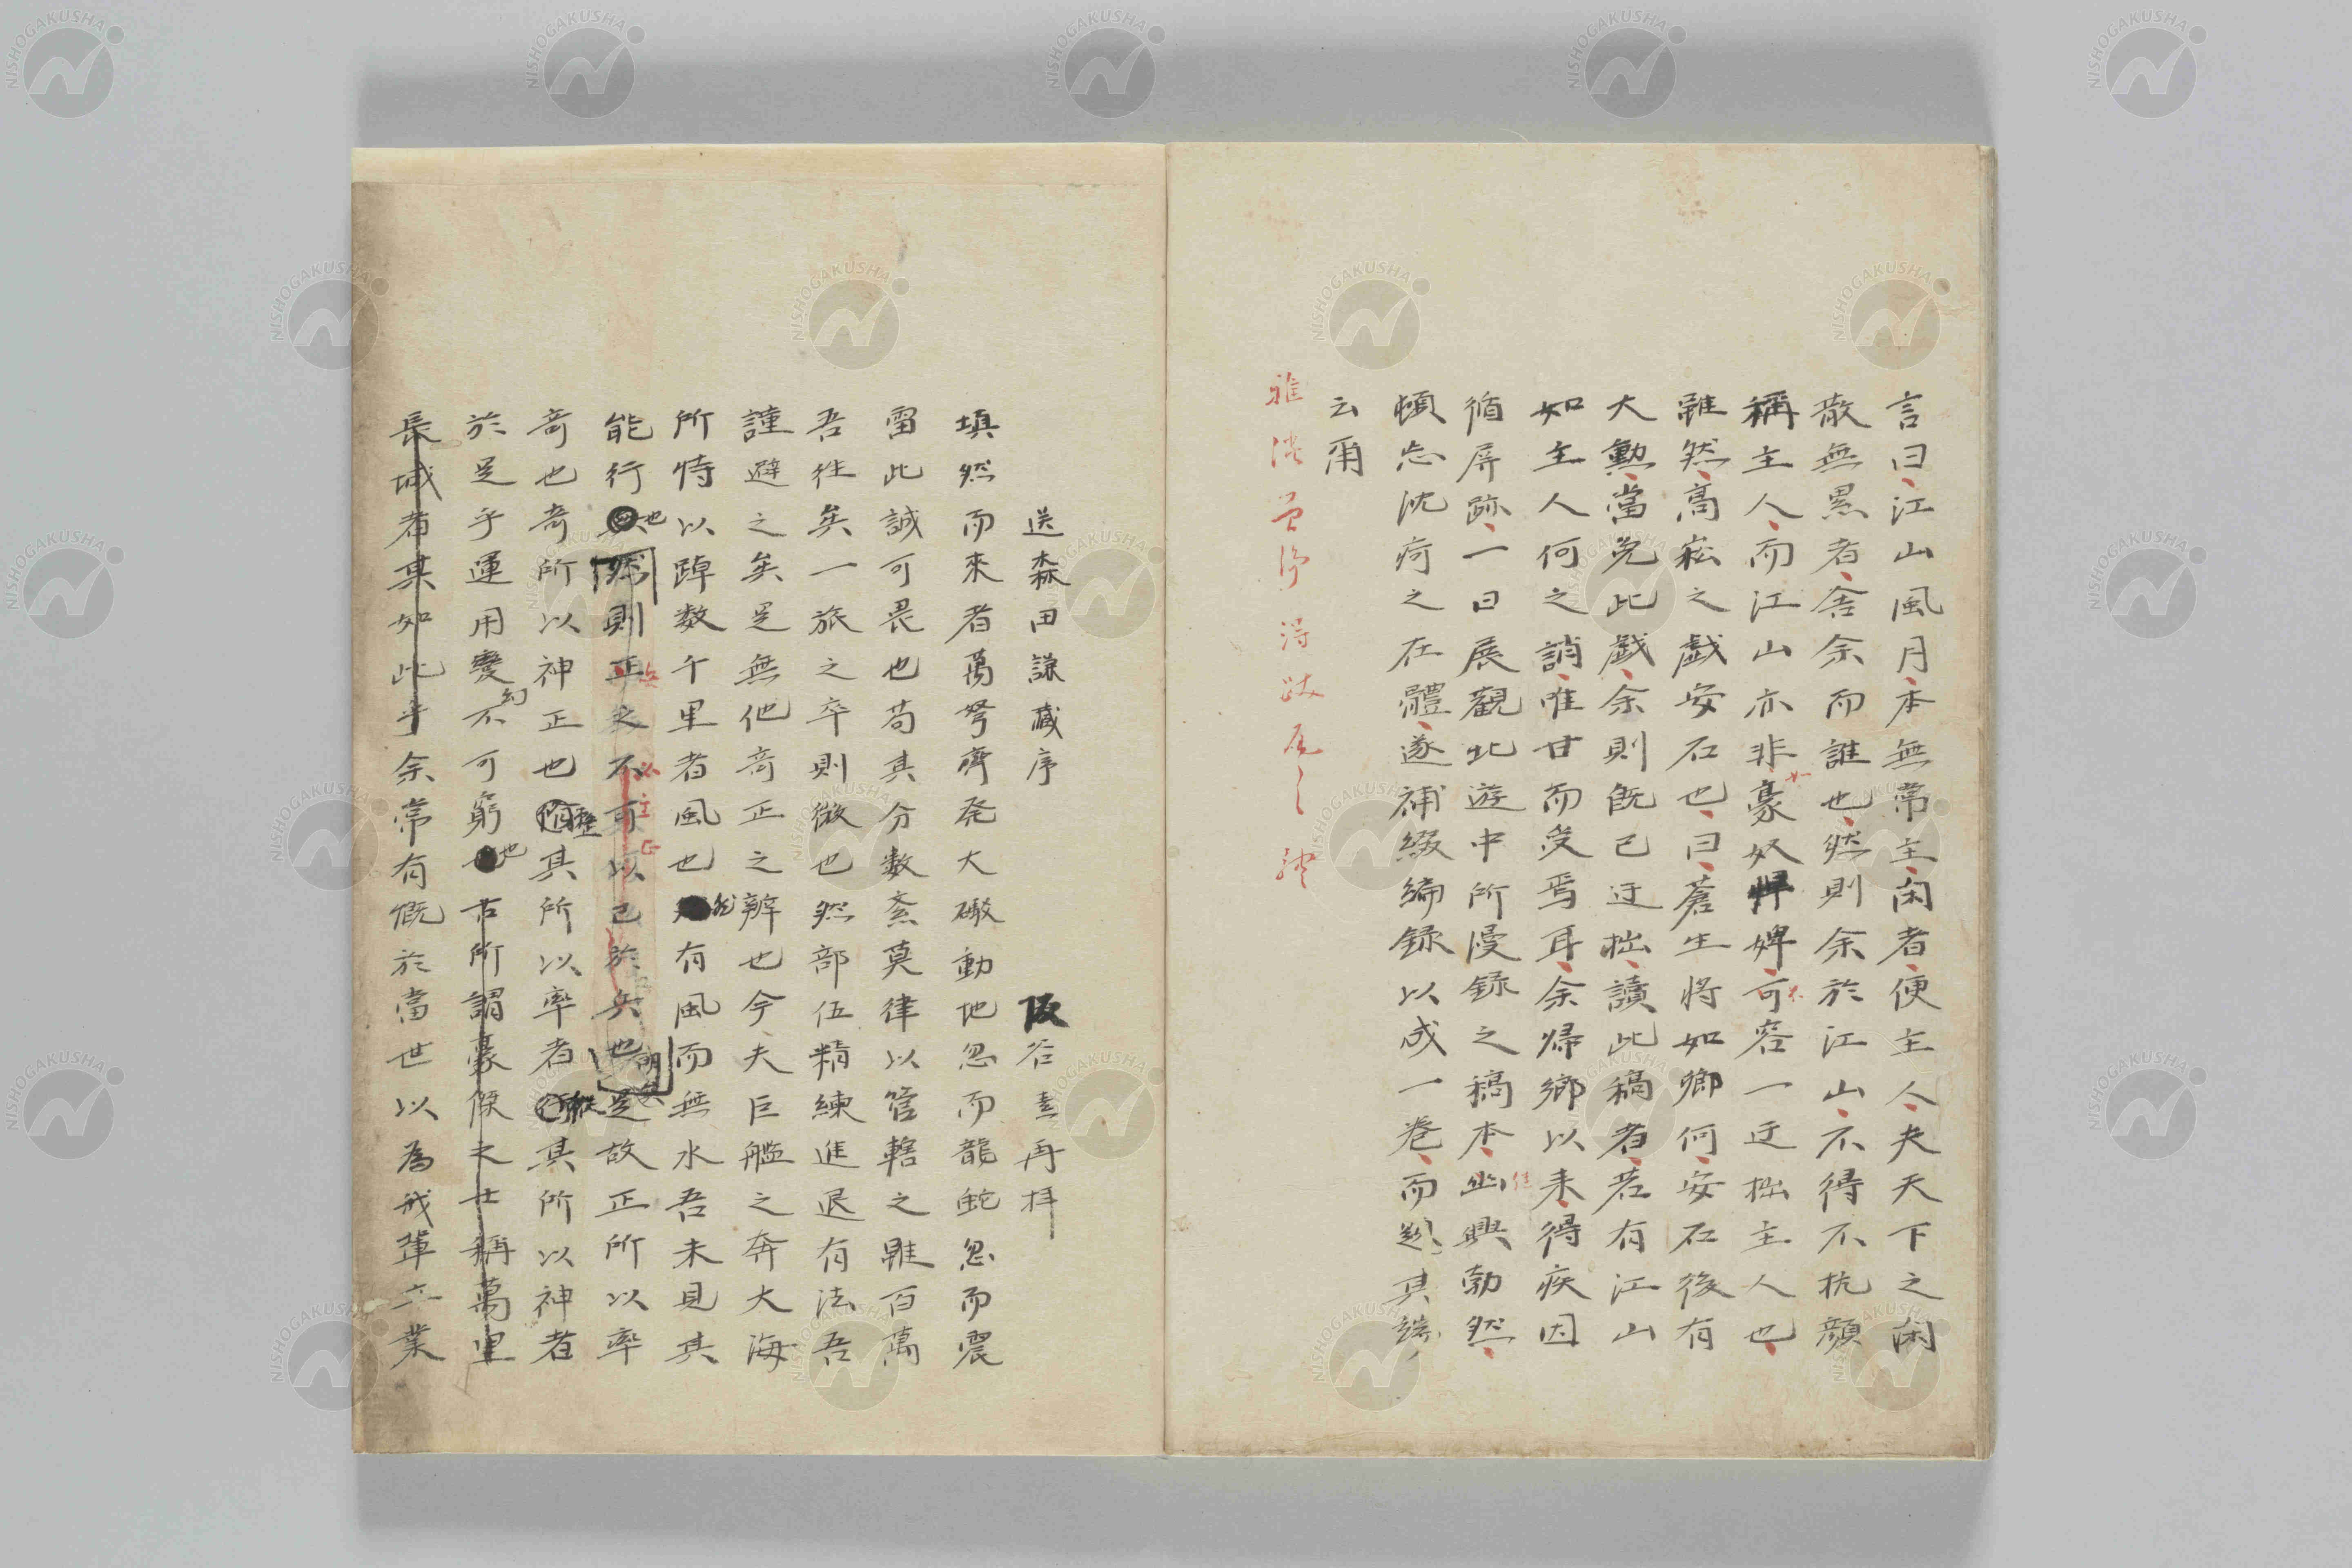 言曰江山風月本無常主閑者便主人夫天下之閑
散無累者舍余而誰也然則余於江山不得不抗顔
稱主人而江山亦非豪奴悍婢可容一迂拙主人也
雖然高崧之戯安石也曰蒼生將如卿何安石後有
大勳當免此戯余則既已迂拙讀此稿者若有江山
如主人何之誚唯甘而受焉耳余帰郷以来得疾因
循屏跡一日展觀北遊中所漫録之稿本幽興勃然
頓忘沈痾之在體遂補綴編録以成一巻而題其端
云爾
送森田謙蔵序 阪谷素再拝
填然而來者萬弩齊発大礮動地忽而龍蛇忽而震
雷此誠可畏也苟其分數紊莫律以管轄之雖百萬
吾徃矣一旅之卒則微也然部伍精練進退有法吾
謹避之矣是無他奇正之辨也今夫巨艦之奔大海
所恃以踔数千里者風也然有風而無水吾未見其
能行也則正之不可以已於兵也明矣是故正所以率
奇也奇所以神正也歴其所以率者縦其所以神者
於是乎運用變幻不可窮也古所謂豪傑之士稱萬里
長城者其如此乎余常有慨於當世以為我軰亦業